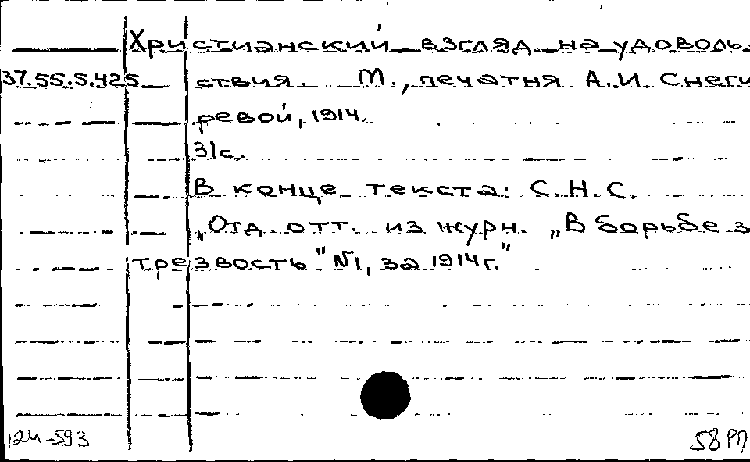 Христианский взгляд на удоволь
37.55.5.425 ствия. М., печатня А.И. Снеги
ревой, 1914.
31с.
В конце текста: С.Н.С.
„Отд. отт. из журн. „В борьбе з
трезвость" №1, за 1914г."
124-593
58 РП